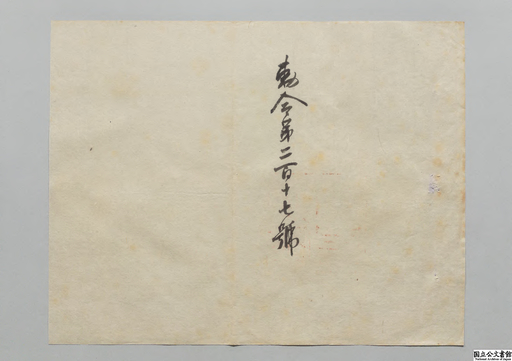 勅令第二百十七號
国立公文書館
National Archives of Japan